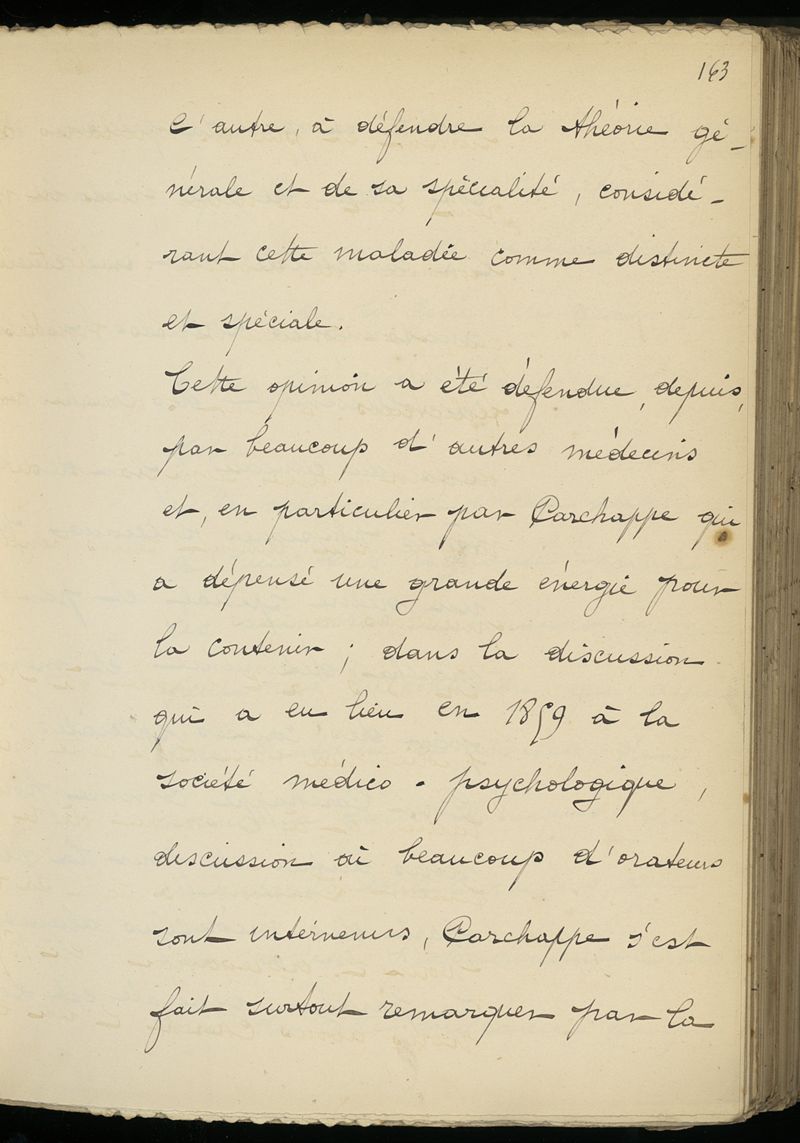 163
l'autre, à défendre la théorie gé-
nérale et de sa spécialité, considé-
rant cette maladie comme distincte
et spéciale.
Cette opinion a été défendue, depuis,
par beaucoup d'autres médecins
et, en particulier par Parchappe qui
a dépensé une grande énergie pour
la contenir ; dans la discussion
qui a eu lieu en 1859 à la
société médico-psychologique,
discussion où beaucoup d'orateurs
sont intervenus, Parchappe s'est
fait surtout remarquer par la